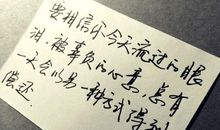 要相信你今天流过的眼
泪、被辜负的心意，总有
一天会以另一种方式得到
偿还.